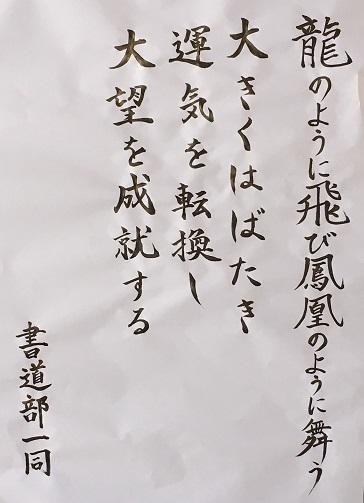 龍のように飛び鳳凰のように舞う
大きくはばたき
運気を転換し
大望を成就する
書道部一同